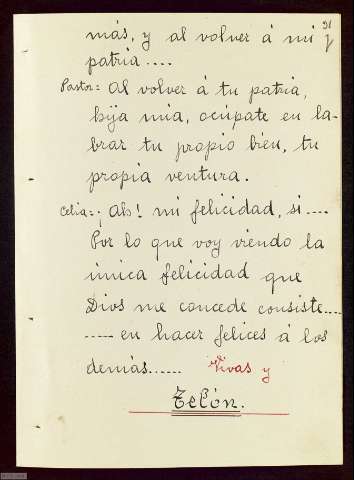 91
más, y al volver á mi
patria....
Pastor= Al volver á tu patria,
hija mia, ocúpate en la-
brar tu propio bien, tu
propia ventura.
Celia=¡Ah! mi felicidad, si....
Por lo que voy viendo la
única felicidad que
Dios me concede consiste....
.....en hacer felices á los
demás...... Vivas y
Telón.